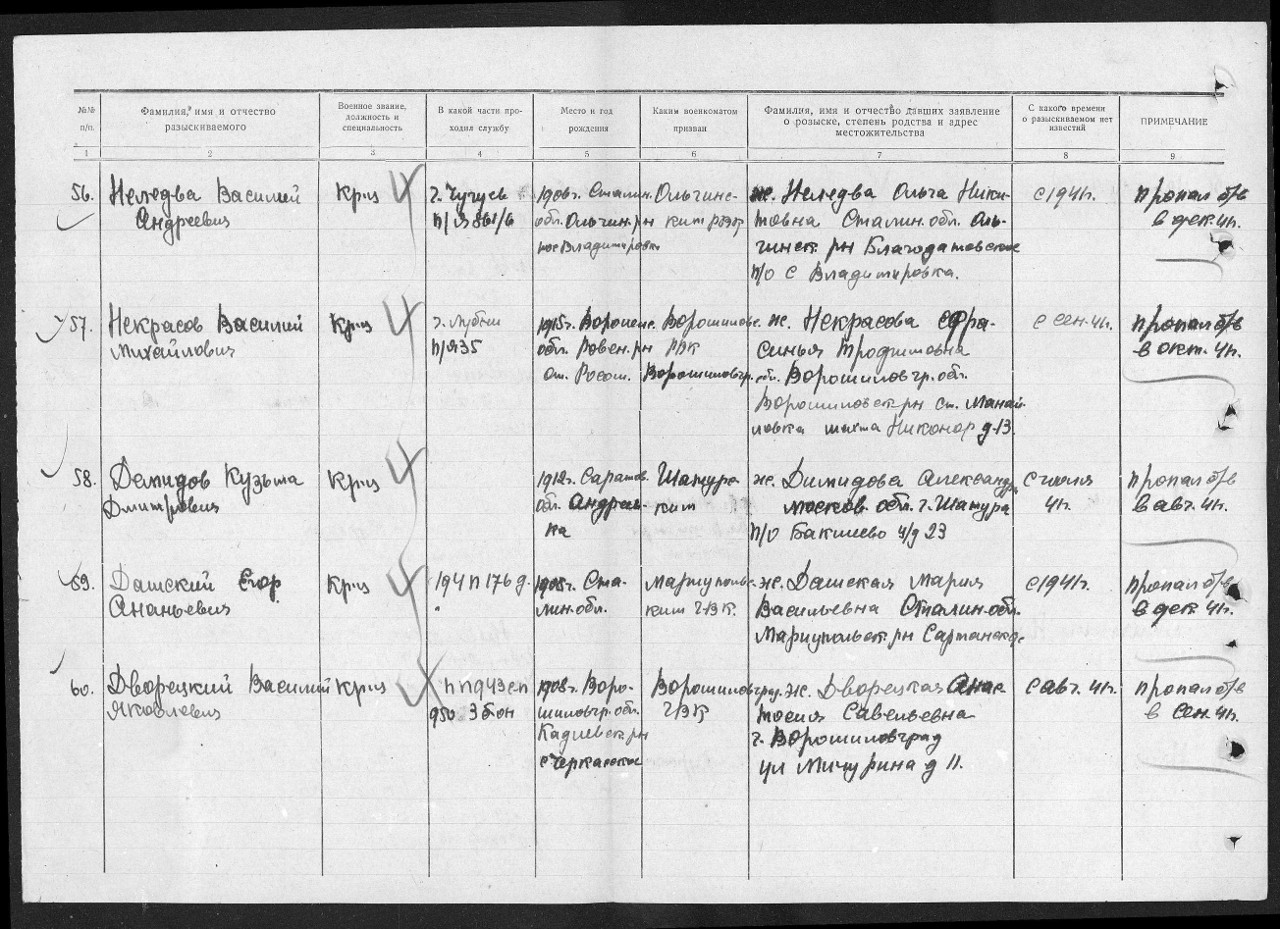 №№ п/п.
Фамилия, имя и отчество разыскиваемого
Военное звание, должность и специальность
В какой части проходил службу
Место и год рождения
Каким военкоматом призван
Фамилия, имя и отчество давших заявление о розыске, степень родства и адрес местожительства
С какого времени о разыскиваемом нет известий
ПРИМЕЧАНИЕ
1 2 3 4 5 6 7 8 9
56.
Неледва Василий
Андреевич
Кр-ц
г. Чугуев
п/я 861/6
1906г. Сталин.
обл. Ольгин. рн
Владимировка
Ольгинс-
ким РВК
ж. Неледва Ольга Ники-
товна Сталин. обл. Оль-
гинск. рн Благодатовское
п/о с Владимировка.
с 1941г.
пропал б/в
в дек. 41г.
57.
Некрасов Василий
Михайлович
Кр-ц
г. Лубны
п/я 35
1915г. Воронеж.
обл. Ровен. рн
ст. Россош.
Ворошиловс.
РВК
Ворошиловгр.
обл.
ж. Некрасова Ефро-
синья Трофимовна
Ворошиловгр. обл.
Ворошиловск рн ст. Манай-
ловка шахта Никонор д-13.
с сен. 41г.
пропал б/в
в окт. 41г.
58.
Демидов Кузьма
Дмитрович
Кр-ц
1912г. Саратов.
обл. Андреев-
ка
Шатурс-
ким
ж. Димидова Александр
москов. обл. г. Шатура
п/о Бакшеево ч/д 23
с июля
41г.
пропал б/в
в авг. 41г.
59.
Дашский Егор
Ананьевич
Кр-ц
194 п 176 д.
1905г. Ста-
лин. обл.
Мариупольс-
ким ГВК.
ж. Дашская Мария
Васильевна Сталин. обл.
Мариупольск. рн Сартанск
с 1941г.
пропал б/в
в дек. 41г.
60.
Дворецкий Василий
Яковлевич
Кр-ц
п п 943 сп
950 3 б-он
1908г. Воро-
шиловгр. обл.
Кадиевск рн
с Черкасское
Ворошиловград.
ГВК
ж. Дворецкая Анас-
тосия Савельевна
г. Ворошиловград
ул Мичурина д 11.
с авг. 41г.
пропал б/в
в сен. 41г.